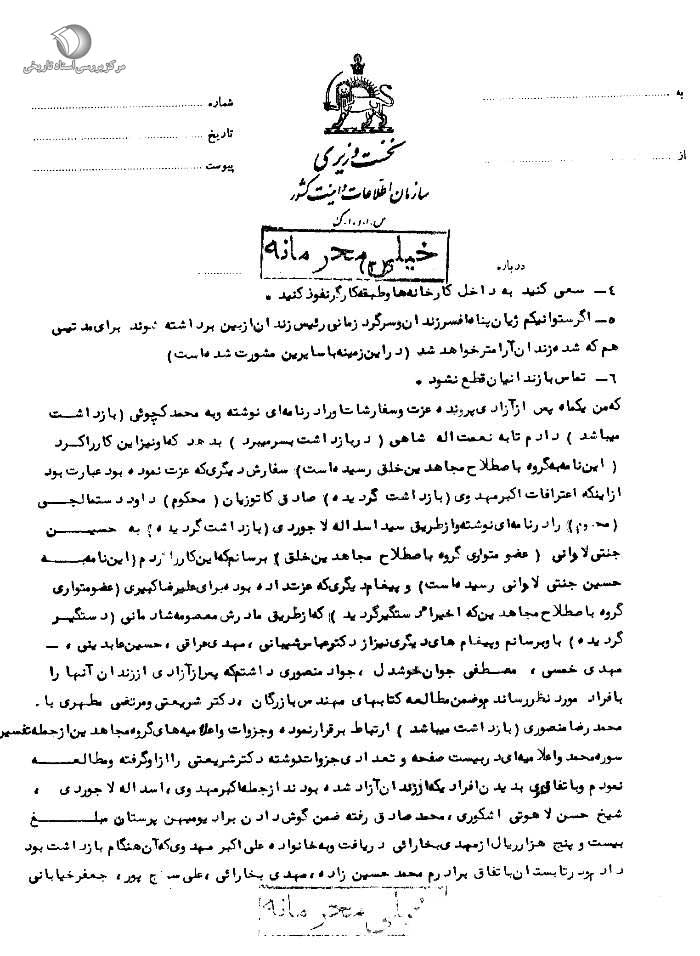 مرکز بررسی اسناد تاریخی
به
از
شماره
تاریخ
پیوست
نخست وزیری
سازمان اطلاعات و امنیت کشور
س.ا.و.ا.ک
خیلی محرمانه
درباره
٤ـ سعی کنید به داخل کارخانه‌ها و طبقه کارگر نفوذ کنید .
٥ـ اگر ستوانیکم ژیان پناه افسر زندان و سرگرد زمانی رئیس زندان از بین برداشته شوند برای مدتیی
هم که شده زندان آرامتر خواهد شد (در این زمینه با سایرین مشورت شده است)
٦ـ تماس با زندانیان قطع نشود .
که من یکماه پس از آزادی پرونده عزت و سفارشات او را در نامه‌ای نوشته و به محمد کچوئی (بازداشت
میباشد) دادم تا به نعمت اله شاهی (در بازداشت بسر میبرد) بدهد که او نیز این کار را کرد
(این نامه به گروه باصطلاح مجاهدین خلق رسیده است) سفارش دیگری که عزت نموده بود عبارت بود
از اینکه اعترافات اکبر مهدوی (بازداشت گردیده) صادق کاتوزیان (محکوم) داود دستمالچی
(محکوم) را در نامه‌ای نوشته و از طریق سید اسداله لاجوردی (بازداشت گردیده) به حسین
جنتی لاوانی (عضو متواری گروه باصطلاح مجاهدین خلق) برسانم که این کار را کردم (این نامه به
حسین جنتی لاوانی رسیده است) و پیغام دیگری که عزت داده بود برای علیرضا کبیری (عضو متواری
گروه باصطلاح مجاهدین که اخیراً دستگیر گردید) که از طریق مادرش معصومه شادمانی (دستگیر
گردیده) باو برسانم و پیغام های دیگری نیز از دکتر عباس شیبانی ، مهدی عراقی ، حسین عابدینی ، ـ
مهدی خمسی ، مصطفی جوان خوشدل ، جواد منصوری داشتم که پس از آزادی از زندان آنها را
بافراد مورد نظر رساندم و ضمن مطالعه کتابهای مهندس بازرگان ، دکتر شریعتی و مرتضی مطهری با .
محمد رضا منصوری (بازداشت میباشد) ارتباط برقرار نموده و جزوات و اعلامیه های گروه مجاهدین از جمله تفسیر
سوره محمد و اعلامیه‌ای در بیست صفحه و تعدادی جزوات نوشته دکتر شریعتی را از او گرفته و مطالعه
نمودم و باتفاق بدیدن افرادیکه از زندان آزاد شده بودند از جمله اکبر مهدوی ، اسداله لاجوردی ،
شیخ حسن لاهوتی اشکوری ، محمد صادق رفته ضمن گوش دادن برادیو میهن پرستان مبلغ
بیست و پنج هزار ریال از مهدی بخارائی دریافت و به خانواده علی اکبر مهدوی که آن هنگام بازداشت بود
دادم و در تابستان باتفاق برادرم محمد حسین زاده ، مهدی بخارائی ، علی پور ، جعفر خیابانی
خیلی محرمانه